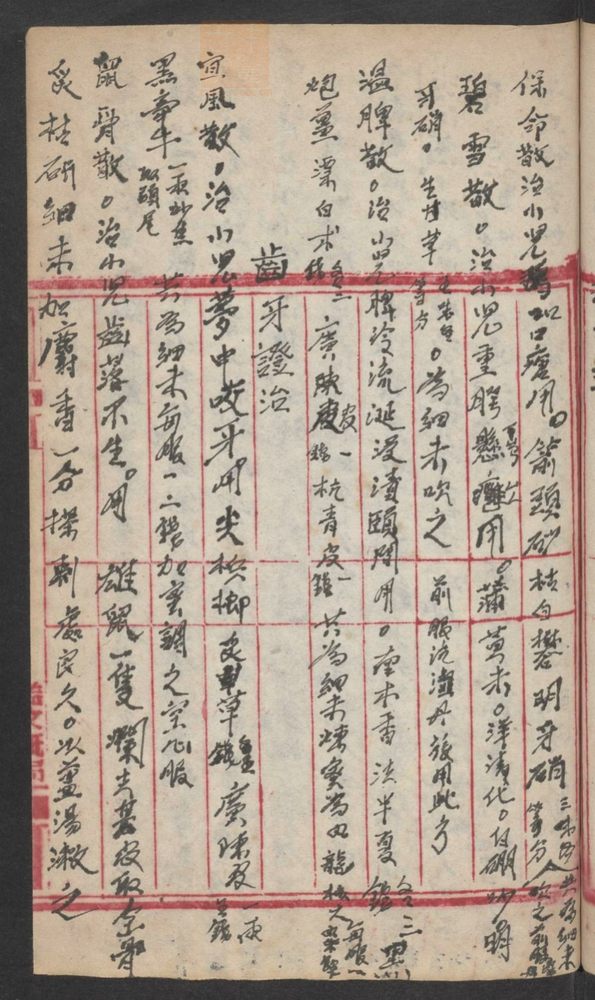 保命散治小兒鵝口瘡用。箭頭砂枯白礬明牙硝等分三味共為細末
碧雪散。治小兒重腭懸癰用。蒲黃末。洋清化。白硼砂
牙硝。生甘草等分。為細末吹之前服沆瀣丹旋用此方
溫脾散。治小兒脾冷流涎浸漬頤間用。廣木香法半夏各三
炮薑漂白术各二錢廣陳皮一錢杭青皮一錢共為細末煉蜜為丸龍
齒牙證治
宣風散。治小兒夢中咬牙用尖檳榔草廣陳皮一兩
黑牽牛取頭尾共為細末每服一二錢加蜜調之空心服
鼠骨散。治小兒齒落不生。用雄鼠一隻爛去其皮取全骨
炙枯研細末加麝香一分搽刺處良久。以薑湯漱之